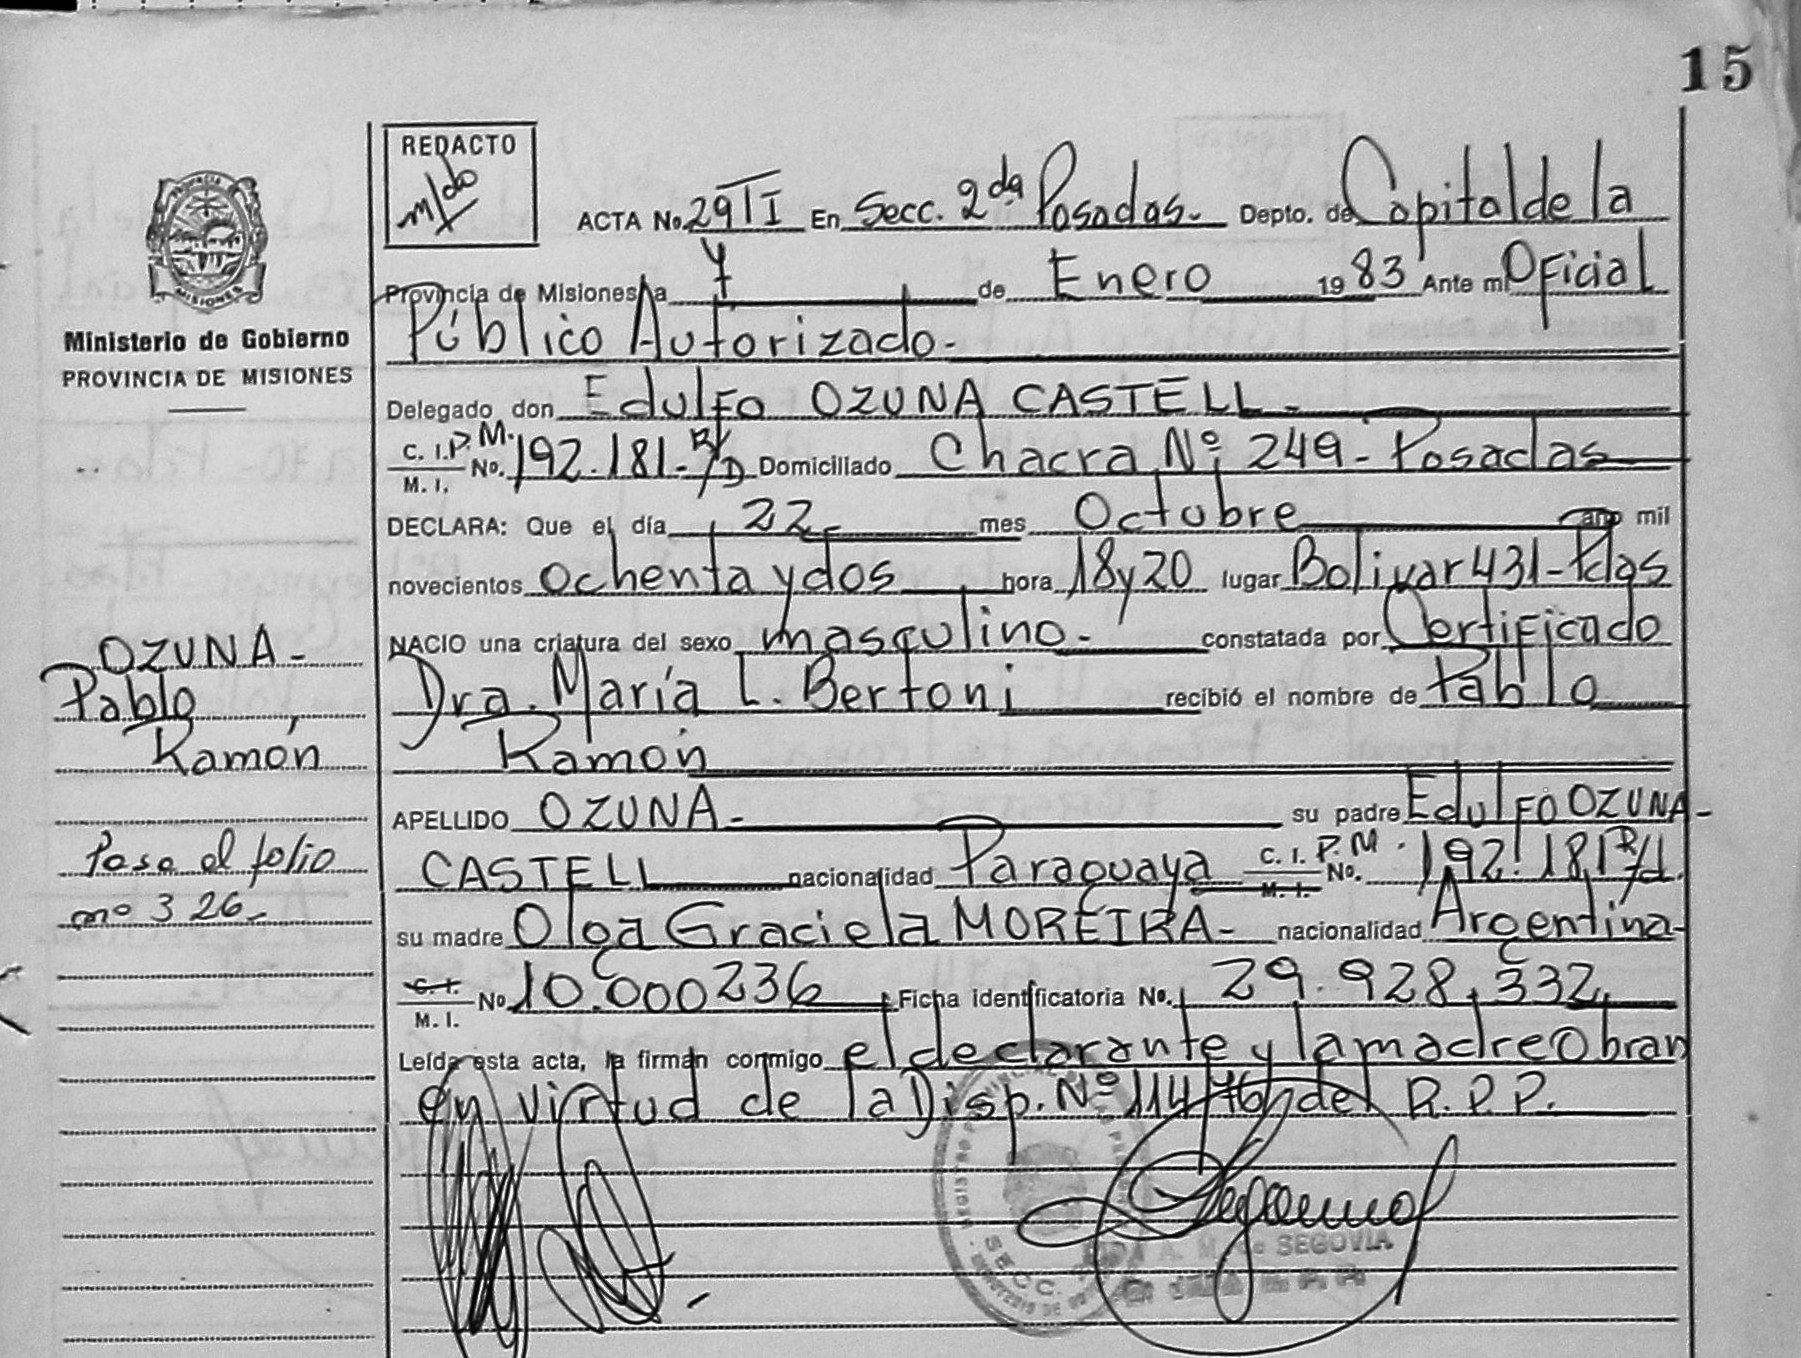 15
REDACTO
m/do
ACTA No. 29 TI En Secc. 2da Posadas.- Depto. de Capital de la
Provincia de Misiones, a 7 de Enero 1983 Ante mí Oficial
Público Autorizado.-
Delegado don Edulfo OZUNA CASTELL.-
C. I. P. M. M. I. No. 192.181.- R/D Domiciliado Chacra Nº 249.- Posadas
DECLARA: Que el día 22 mes Octubre año mil
novecientos ochenta y dos hora 18 y 20 lugar Bolivar 431-Pdas
NACIO una criatura del sexo masculino.- constatada por Certificado
Dra. María L. Bertoni recibió el nombre de Pablo
Ramón
APELLIDO OZUNA.- su padre Edulfo OZUNA-
CASTELL nacionalidad Paraguaya C. I. P. M. M. I. No. 192.181 R/d.
su madre Olga Graciela MOREIRA.- nacionalidad Argentina-
C. I. M. I. No 10.000236 Ficha identificatoria No. 29.928.332
Leída esta acta, la firman conmigo el declarante y la madre Obran
en virtud de la Disp. Nº 114/76 del R.P.P.
PROVINCIA
MISIONES
Ministerio de Gobierno
PROVINCIA DE MISIONES
OZUNA-
Pablo
Ramón
Pasa al folio
nº 326.-
REGISTRO PROVINCIAL DE LAS PERSONAS
SECC.
SEGOVIA